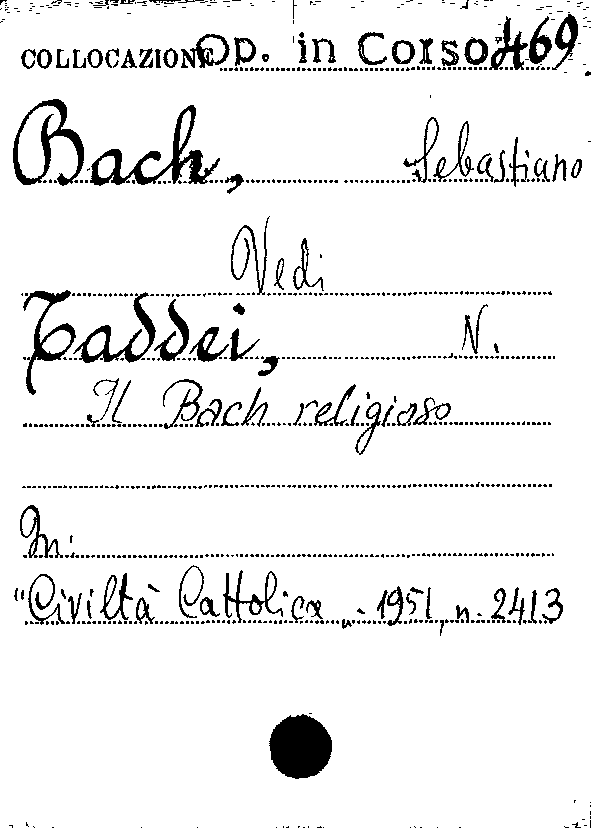 COLLOCAZIONE Op. in Corso 469
Bach, Sebastiano
Vedi
Taddei, N.
Il Bach religioso
In:
"Civiltà Cattolica„ - 1951, n. 2413